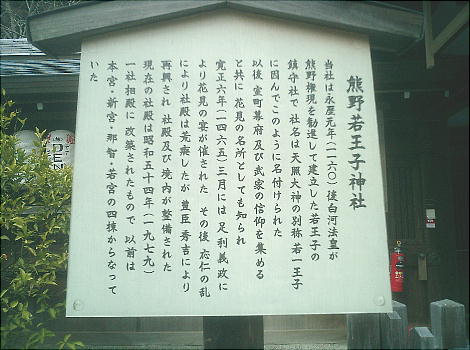 熊野若王子神社
当社は永歴元年(一一六〇)後白河法皇が
熊野権現を勧進して建立した若王子の
鎮守社で 社名は天照大神の別称 若一王子
に因んでこのように名付けられた
以後 室町幕府及び武家の信仰を集める
と共に 花見の名所としても知られ
寛正六年(一四六五)三月には 足利義政に
より花見の宴が催された その後 応仁の乱
により社殿は荒廃したが 豊臣秀吉により
再興され 社殿及び境内が整備された
現在の社殿は昭和五十四年(一九七九)
一社相殿に改築されたもので 以前は
本宮・新宮・那智・若宮の四棟からなって
いた